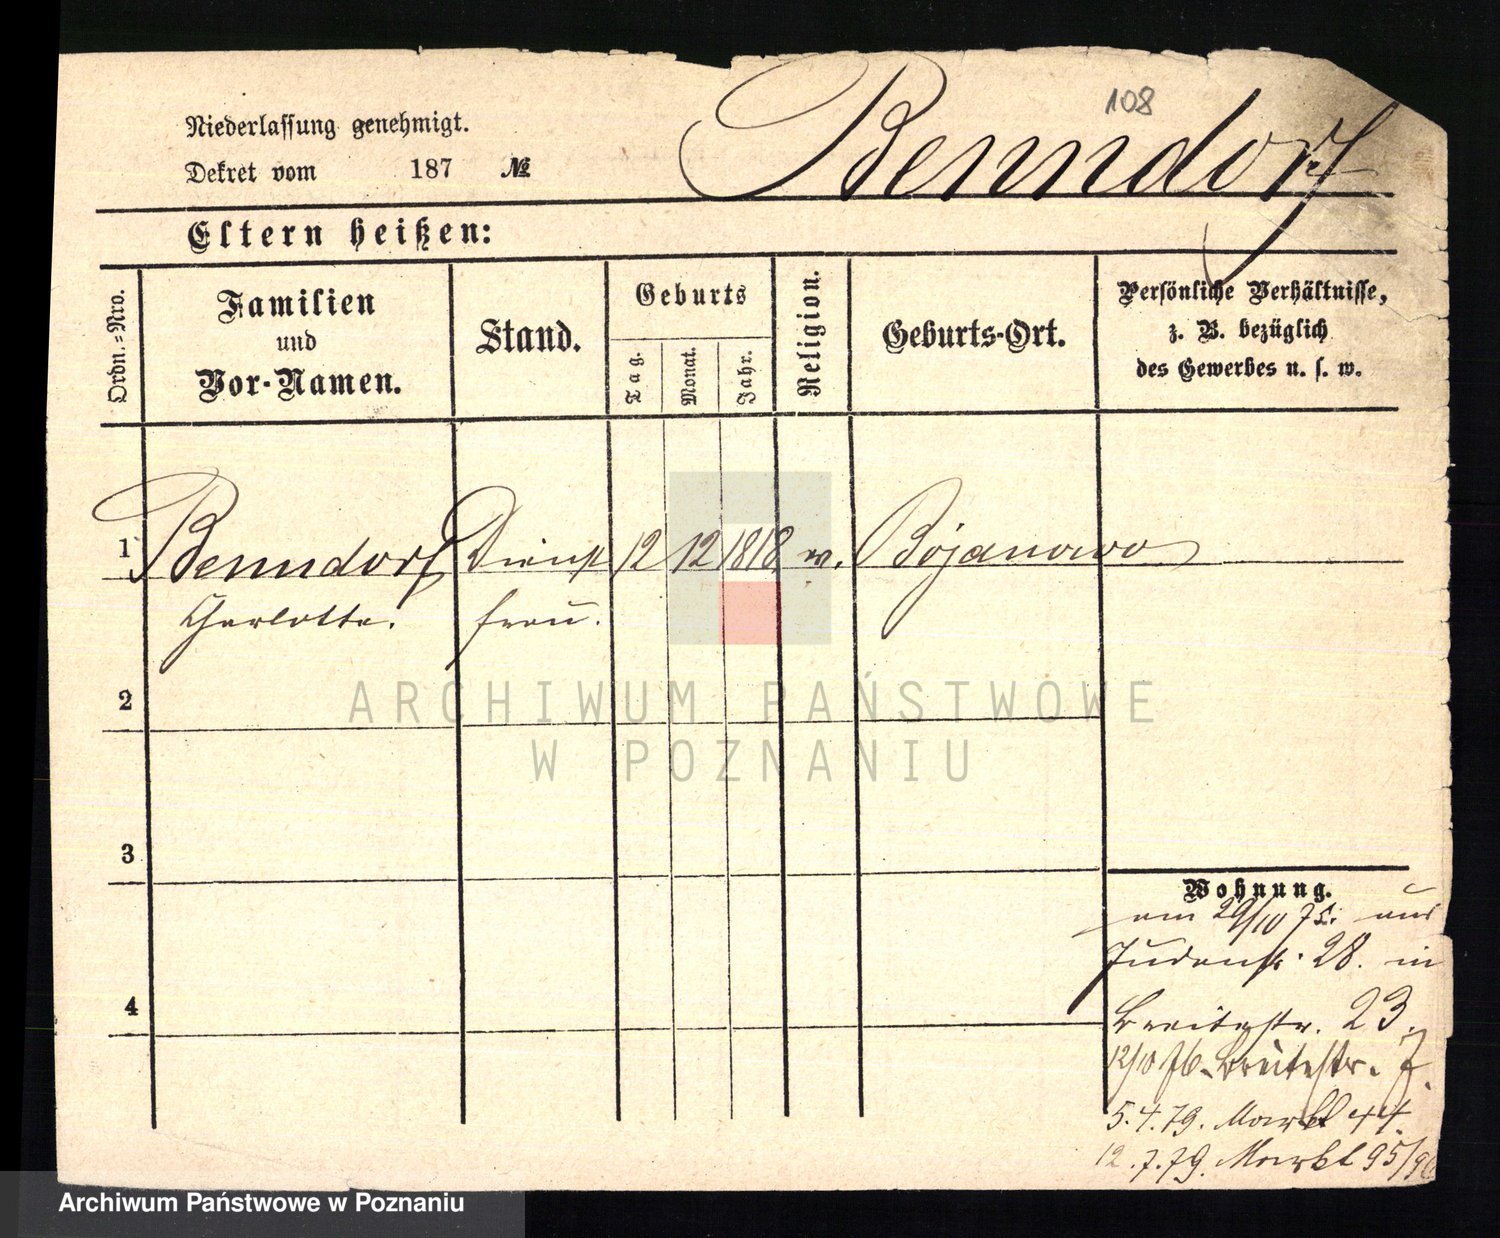 108
Benndorf
Niederlassung genehmigt.
Dekret vom 187 №
Eltern heißen:
Ordn.=Nro.
Familien
und
Vor-Namen.
Stand.
Geburts
Tag.
Monat.
Jahr.
Religion.
Geburts-Ort.
Persönliche Verhältnisse,
z. B. bezüglich
des Gewerbes u. s. w.
1 Benndorf Dienst 12 12 1818 w. Bojanowo
Charlotte. frau.
2
3
4
Wohnung.
am 29/10 75. aus
Judenstr. 28. in
Breitestr. 23.
12/10 76. Breitestr. 7.
5.4.79. Markt 44.
12.7.79. Markt 95/96
ARCHIWUM PAŃSTWOWE
W POZNANIU
Archiwum Państwowe w Poznaniu